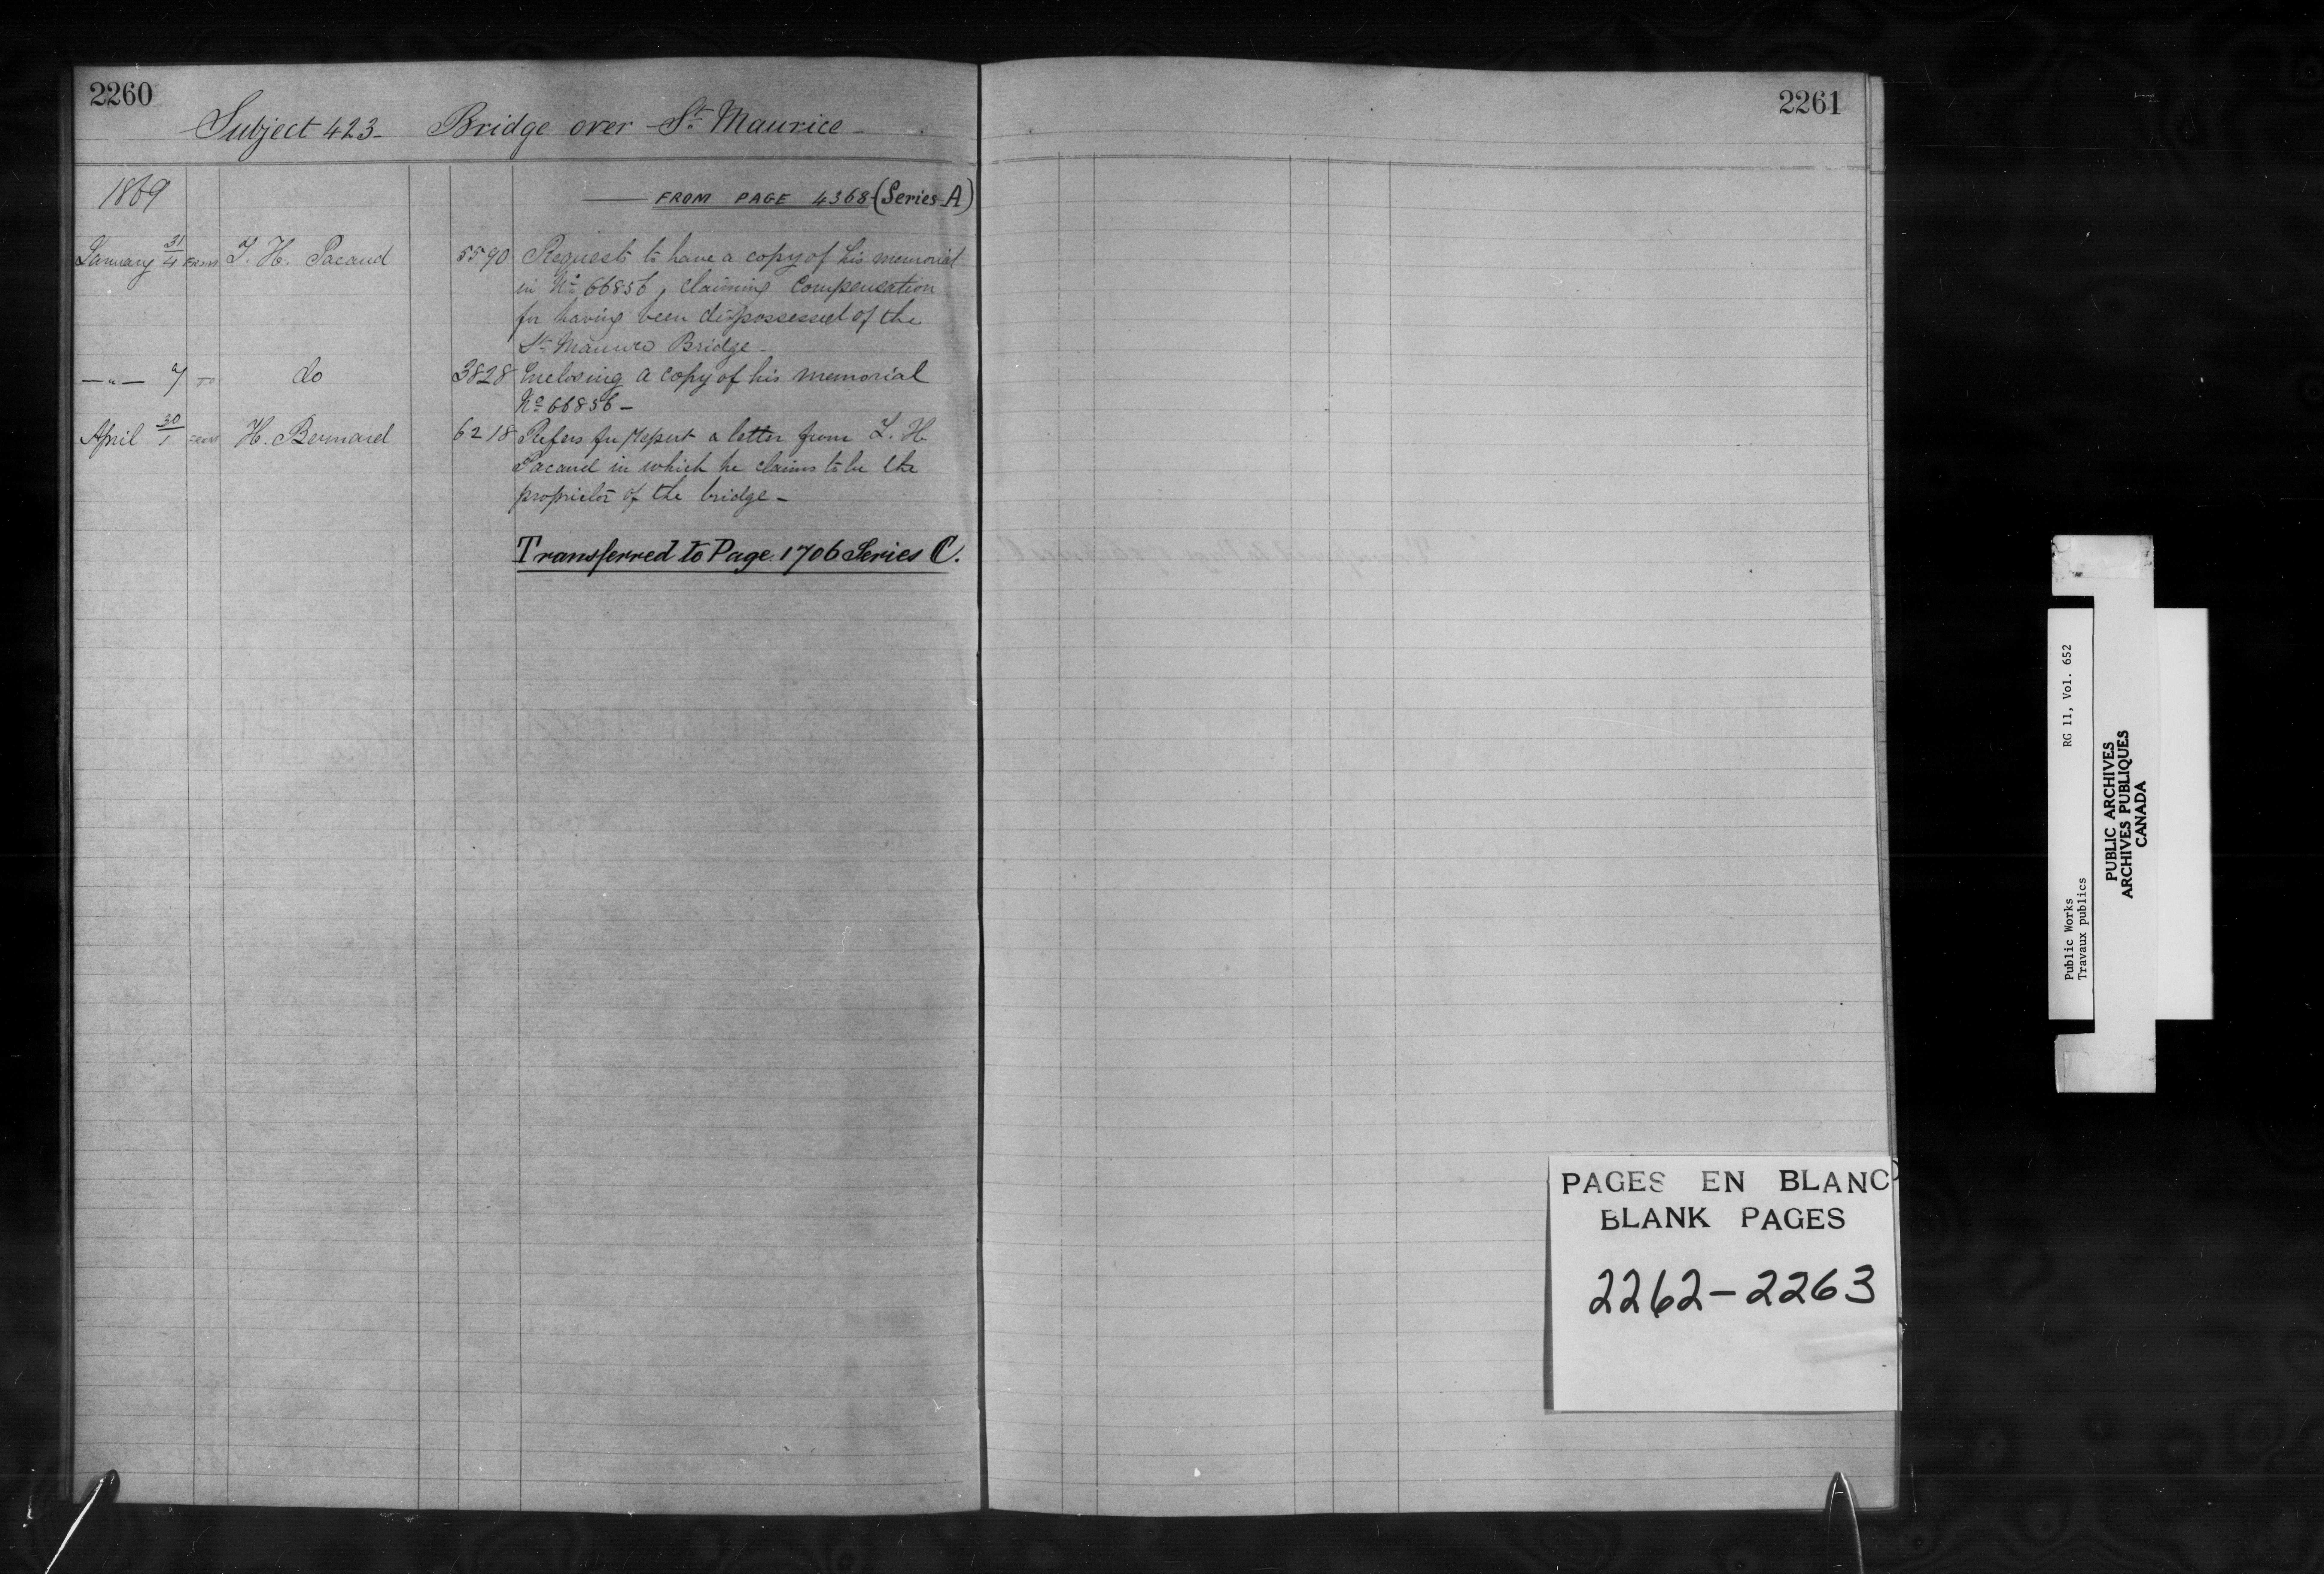 2260
Subject 423 - Bridge over St. Maurice -
1869
FROM PAGE 4368 (Series A)
January 31/4 FROM T. H. Pacaud 5590 Requests to have a copy of his memorial
in No. 66856, claiming Compensation
for having been dispossessed of the
St. Maurice Bridge -
—"— 7 TO do 3828 Enclosing a copy of his memorial
No. 66856 -
April 30/1 FROM H. Bernard 6218 Refers for Report a letter from L. H.
Pacaud in which he claims to be the
proprietor of the bridge -
Transferred to Page 1706 Series C.
2261
PAGES EN BLANC
BLANK PAGES
2262-2263
Public Works RG 11, Vol. 652
Travaux publics
PUBLIC ARCHIVES
ARCHIVES PUBLIQUES
CANADA